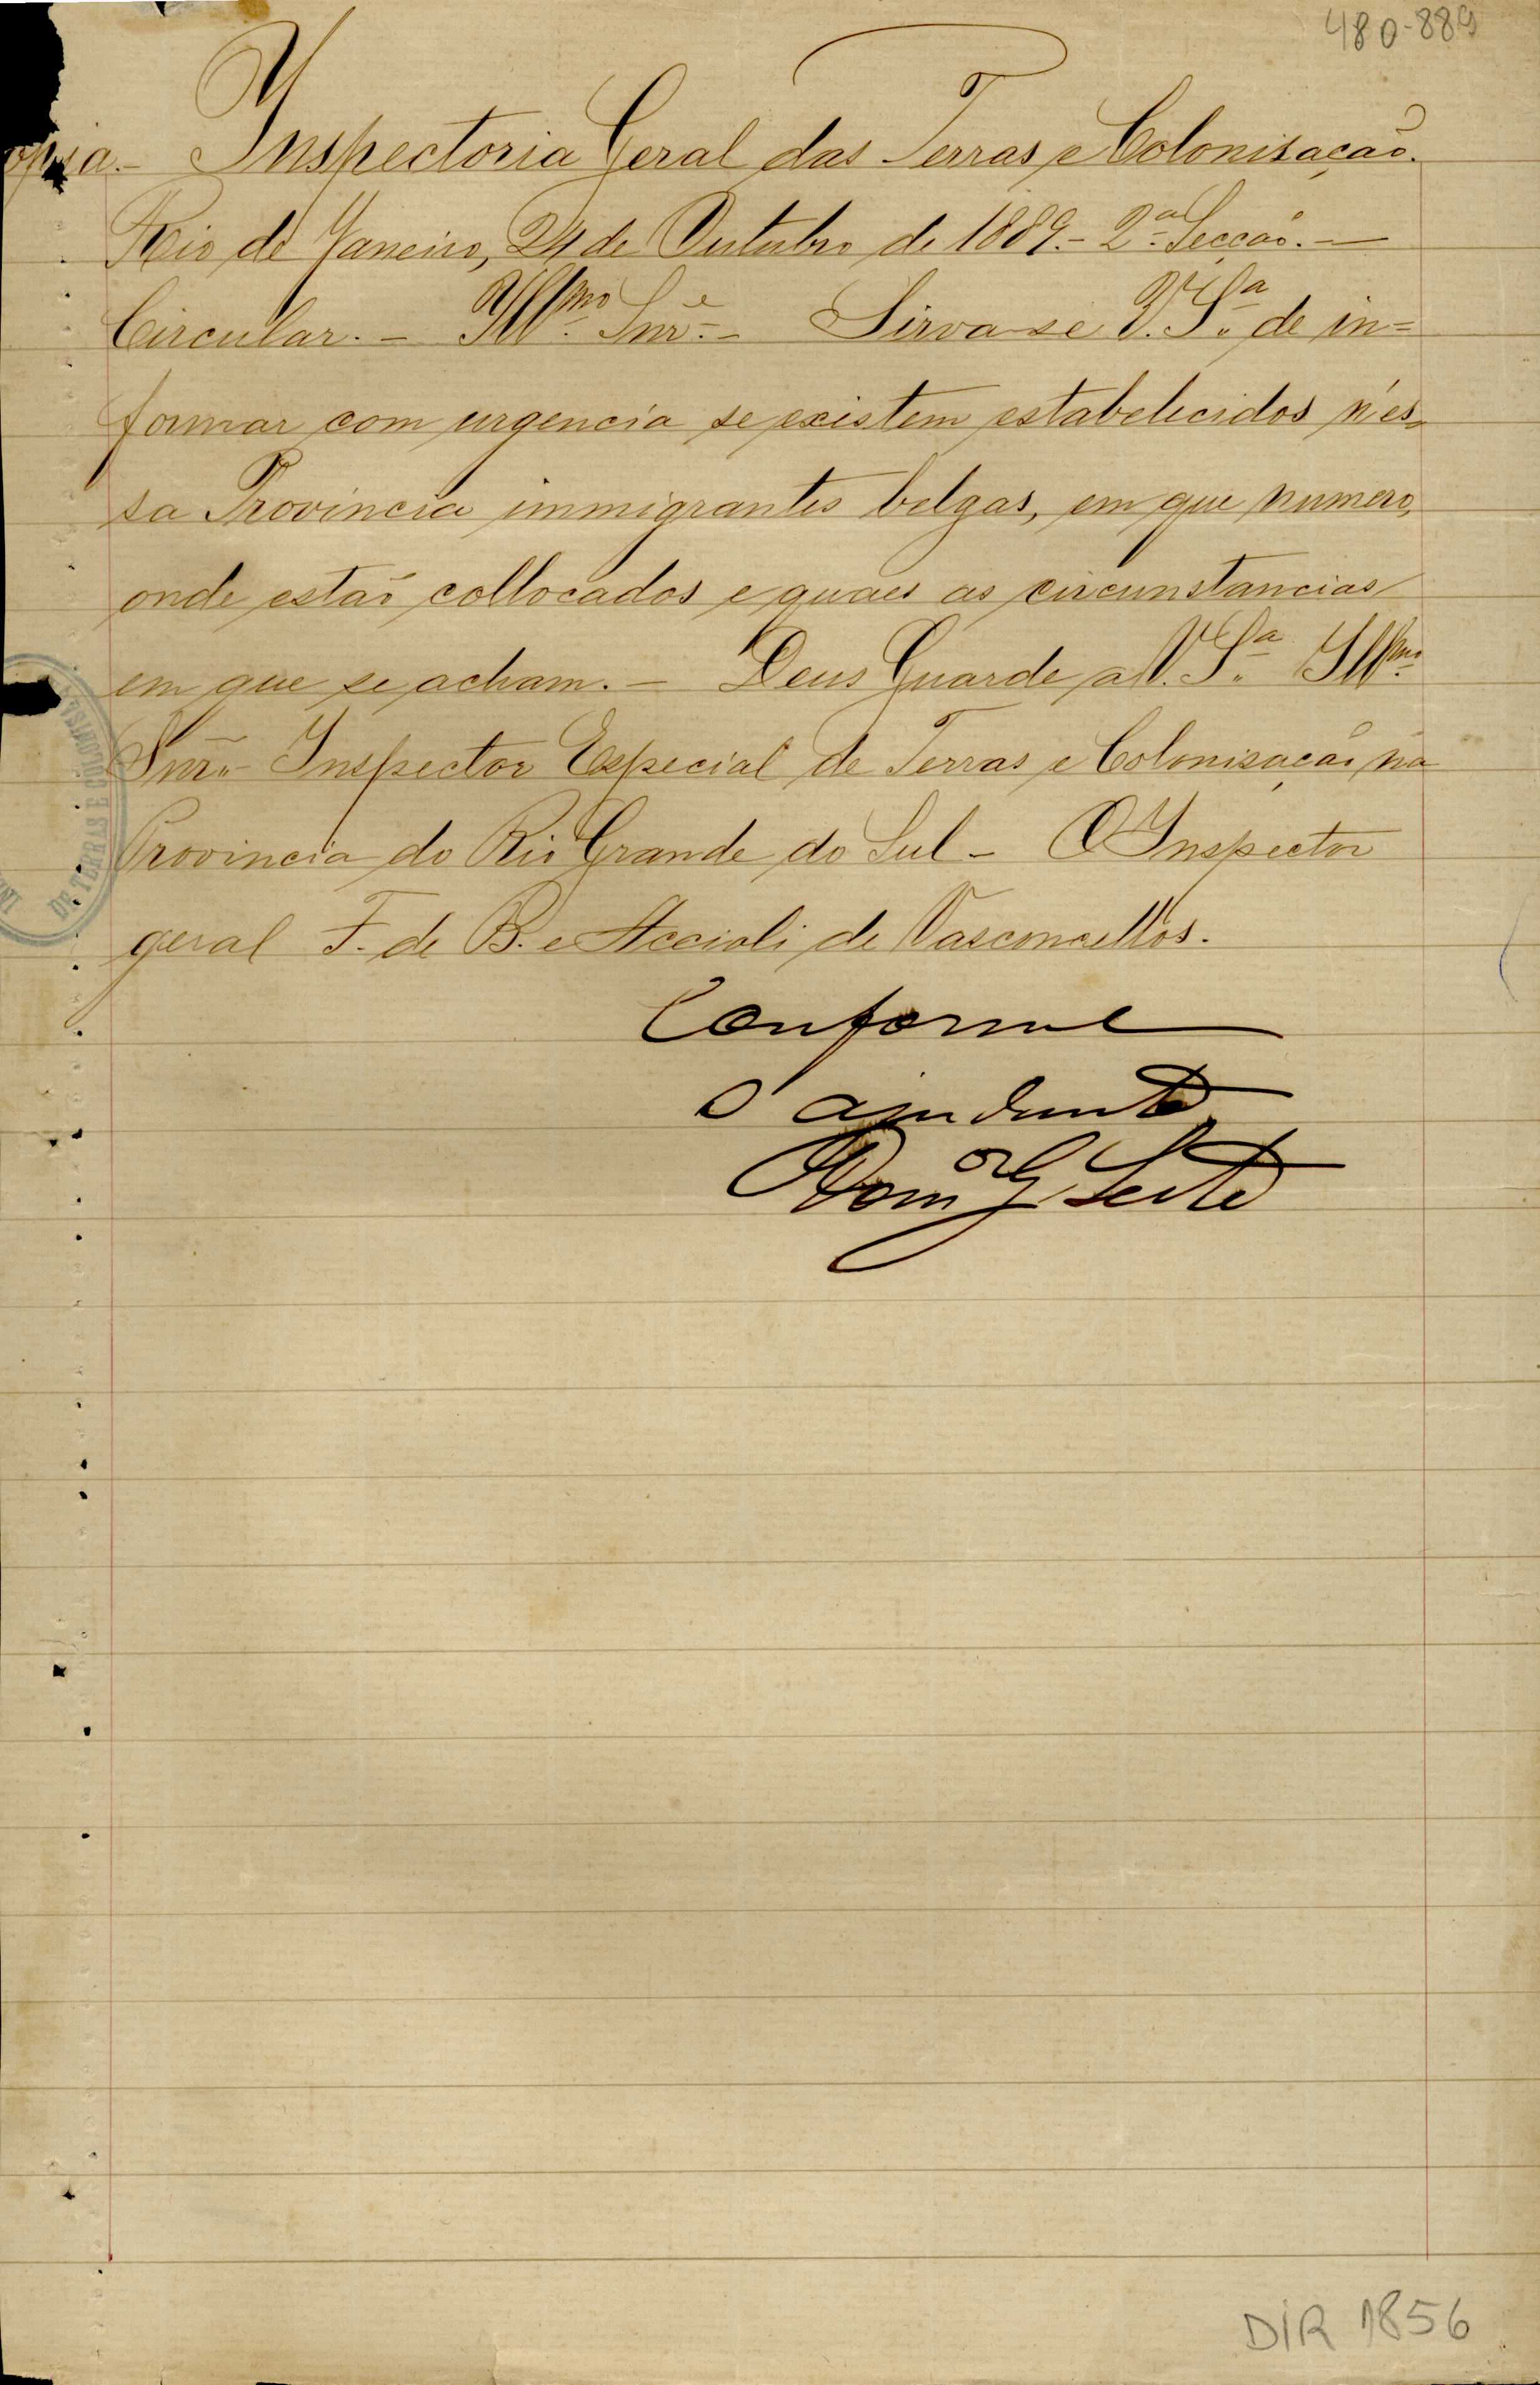 480-889
opia.- Inspectoria Geral das Terras e Colonisação.
Rio de Janeiro, 24 de Outubro de 1889.- 2ª Secção.-
Circular.- Illmo. Snr.- Sirva-se V. Sª. de in=
formar com urgencia se existem estabelecidos n'es=
sa Provincia immigrantes belgas, em que numero,
onde estão collocados e quaes as circunstancias
em que se acham.- Deus Guarde a V. Sª. Illmo.
Snr.- Inspector Especial de Terras e Colonisação na
Provincia do Rio Grande do Sul- O Inspector
geral F. de B. e Accioli de Vasconcellos.
DE TERRAS E COLONISA
Conforme
O ajudante
Leite
DIR 1856